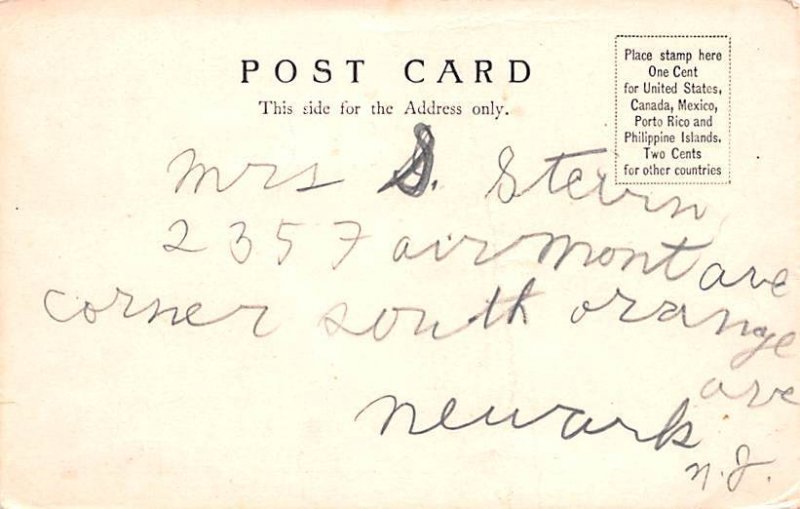 POST CARD
This side for the Address only.
Place stamp here
One Cent
for United States,
Canada, Mexico,
Porto Rico and
Philippine Islands.
Two Cents
for other countries
Mrs S.
235 Fairmont ave
corner south orange
ave
newark
n.J.